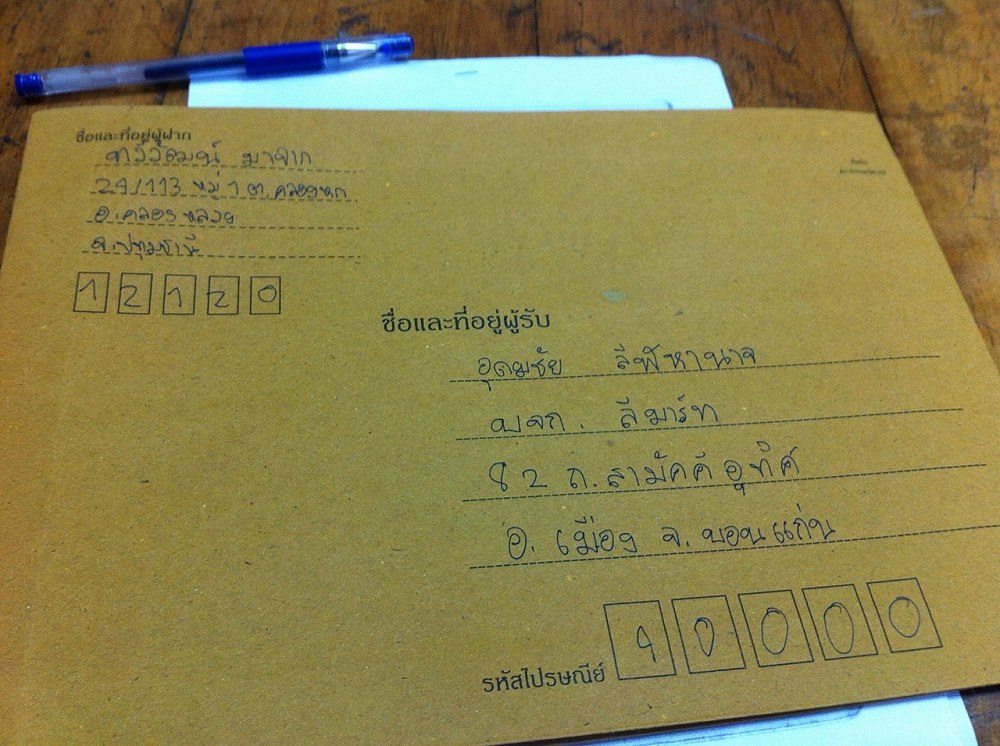 ชื่อและที่อยู่ผู้ฝาก
ทวีวัฒน์ มาจาก
24/113 หมู่ 1 ต.คลองหก
อ.คลองหลวง
จ.ปทุมธานี
12120
ชื่อและที่อยู่ผู้รับ
อุดมชัย สีพัหานาจ
บจก. สีมาร์ท
82 ถ.สามัคคีอุทิศ
อ. เมือง จ. ขอนแก่น
รหัสไปรษณีย์ 40000